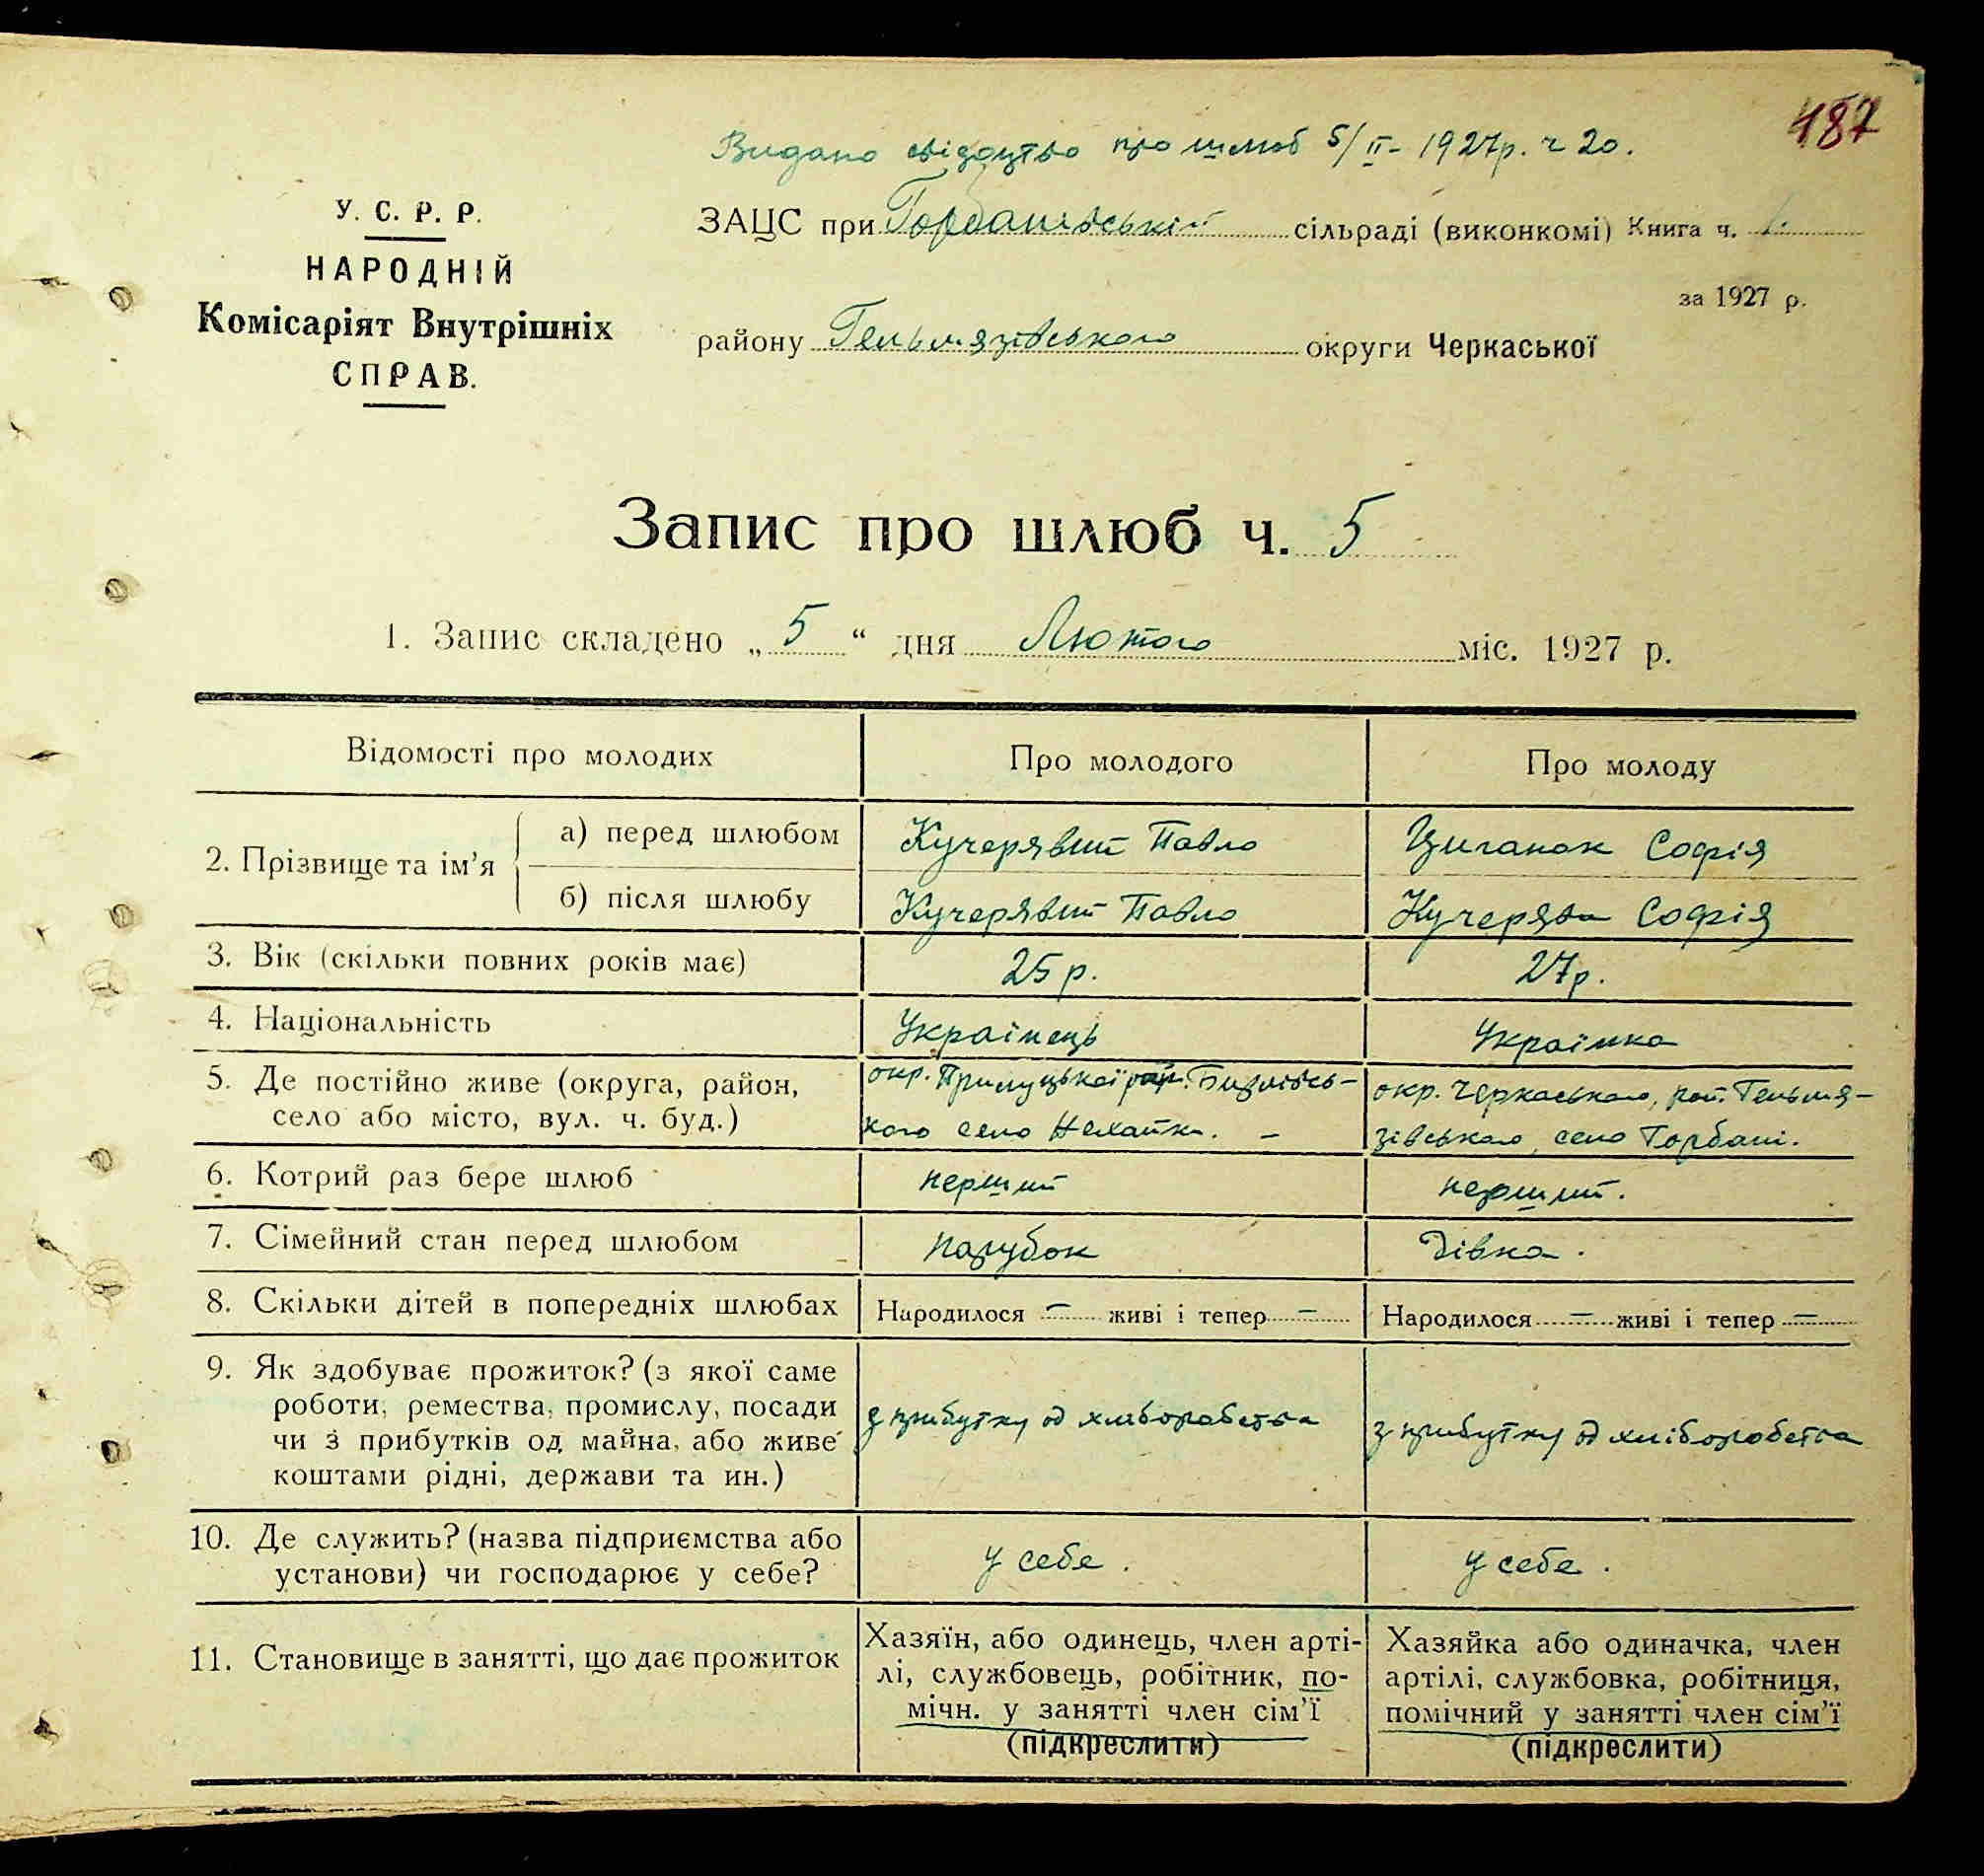 187
Видано свідоцтво про шлюб 5/II- 1927р. ч 20.
У. С. Р. Р.
НАРОДНІЙ
Комісаріят Внутрішніх
СПРАВ.
ЗАЦС при Горбанівській сільраді (виконкомі) Книга ч. 1.
за 1927 р.
району Гельмязівського округи Черкаської
Запис про шлюб ч. 5
1. Запис складено „ 5 “ дня Лютого міс. 1927 р.
Відомості про молодих Про молодого Про молоду
2. Прізвище та ім’я
а) перед шлюбом Кучерявий Павло Циганок Софія
б) після шлюбу Кучерявий Павло Кучерява Софія
3. Вік (скільки повних років має) 25 р. 27р.
4. Національність Українець Українка
5. Де постійно живе (округа, район,
село або місто, вул. ч. буд.)
окр. Прилуцької рай.
кого село Нехайки. -
окр. Черкаського, рай. Гельмя-
зівського, село Горбані.
6. Котрий раз бере шлюб перший перший.
7. Сімейний стан перед шлюбом парубок Дівка.
8. Скільки дітей в попередніх шлюбах Народилося - живі і тепер - Народилося - живі і тепер -
9. Як здобуває прожиток? (з якої саме
роботи, ремества, промислу, посади
чи з прибутків од майна, або живе
коштами рідні, держави та ин.)
з прибутку од хліборобства
з прибутку од хліборобства
10. Де служить? (назва підприємства або
установи) чи господарює у себе?
у себе.
у себе.
11. Становище в занятті, що дає прожиток
Хазяїн, або одинець, член арті-
лі, службовець, робітник, по-
мічн. у занятті член сім’ї
(підкреслити)
Хазяйка або одиначка, член
артілі, службовка, робітниця,
помічний у занятті член сім’ї
(підкреслити)